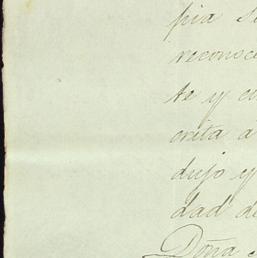 pia s
reconoc
te y c
crita a
dujo y
dad d
Doña